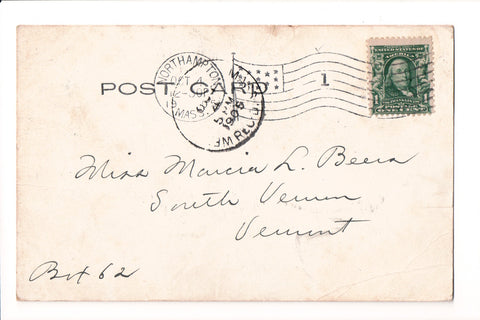 POST CARD
NORTHAMPTON
OCT 4
MASS.
1
1905
REC'D
Miss Marcia L. Beers
South Vernon
Vermont
Box 62